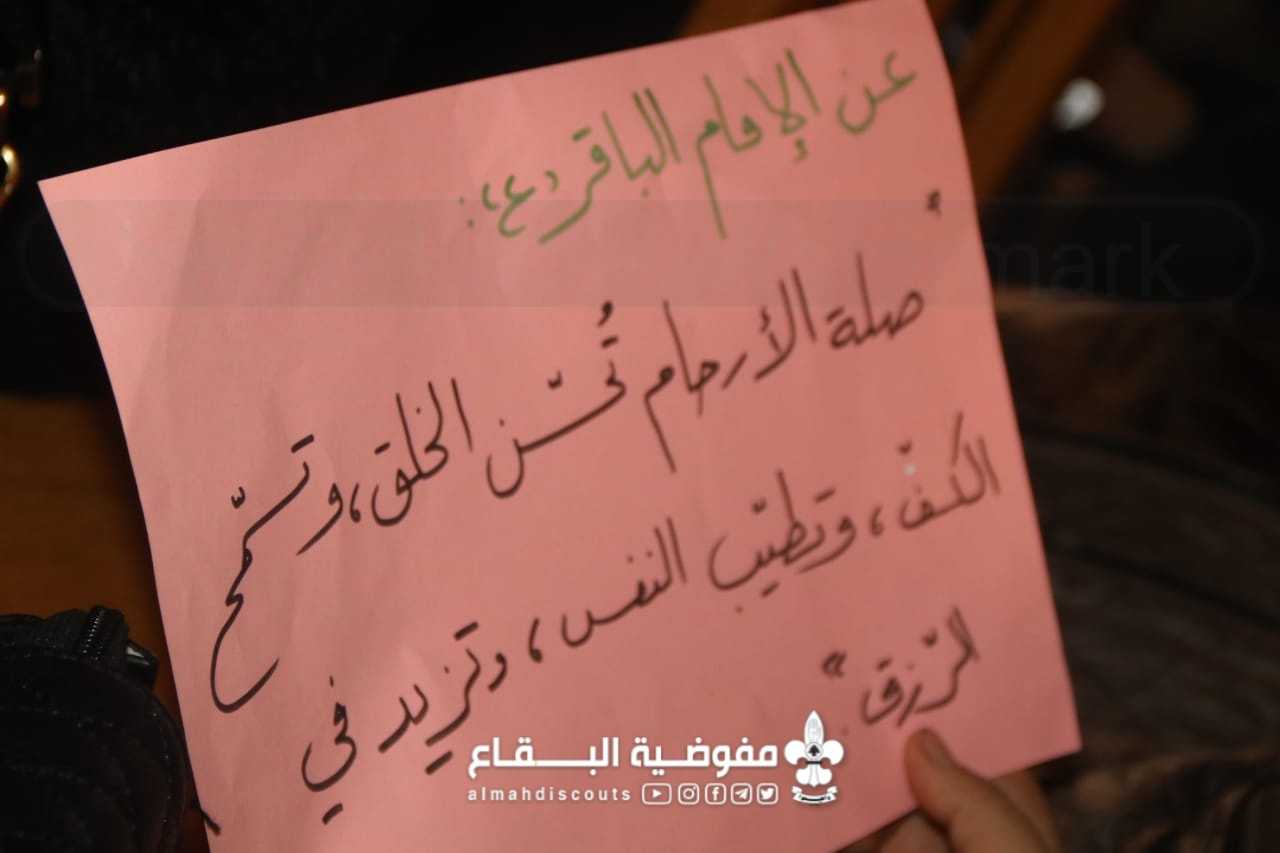 عن الإمام الباقر (ع):
"صلة الأرحام تُحسّن الخلق، وتسمّح
الكفّ، وتطيّب النفس، وتزيد في
الرّزق."
مفوضية البقاع
almahdiscouts
mark